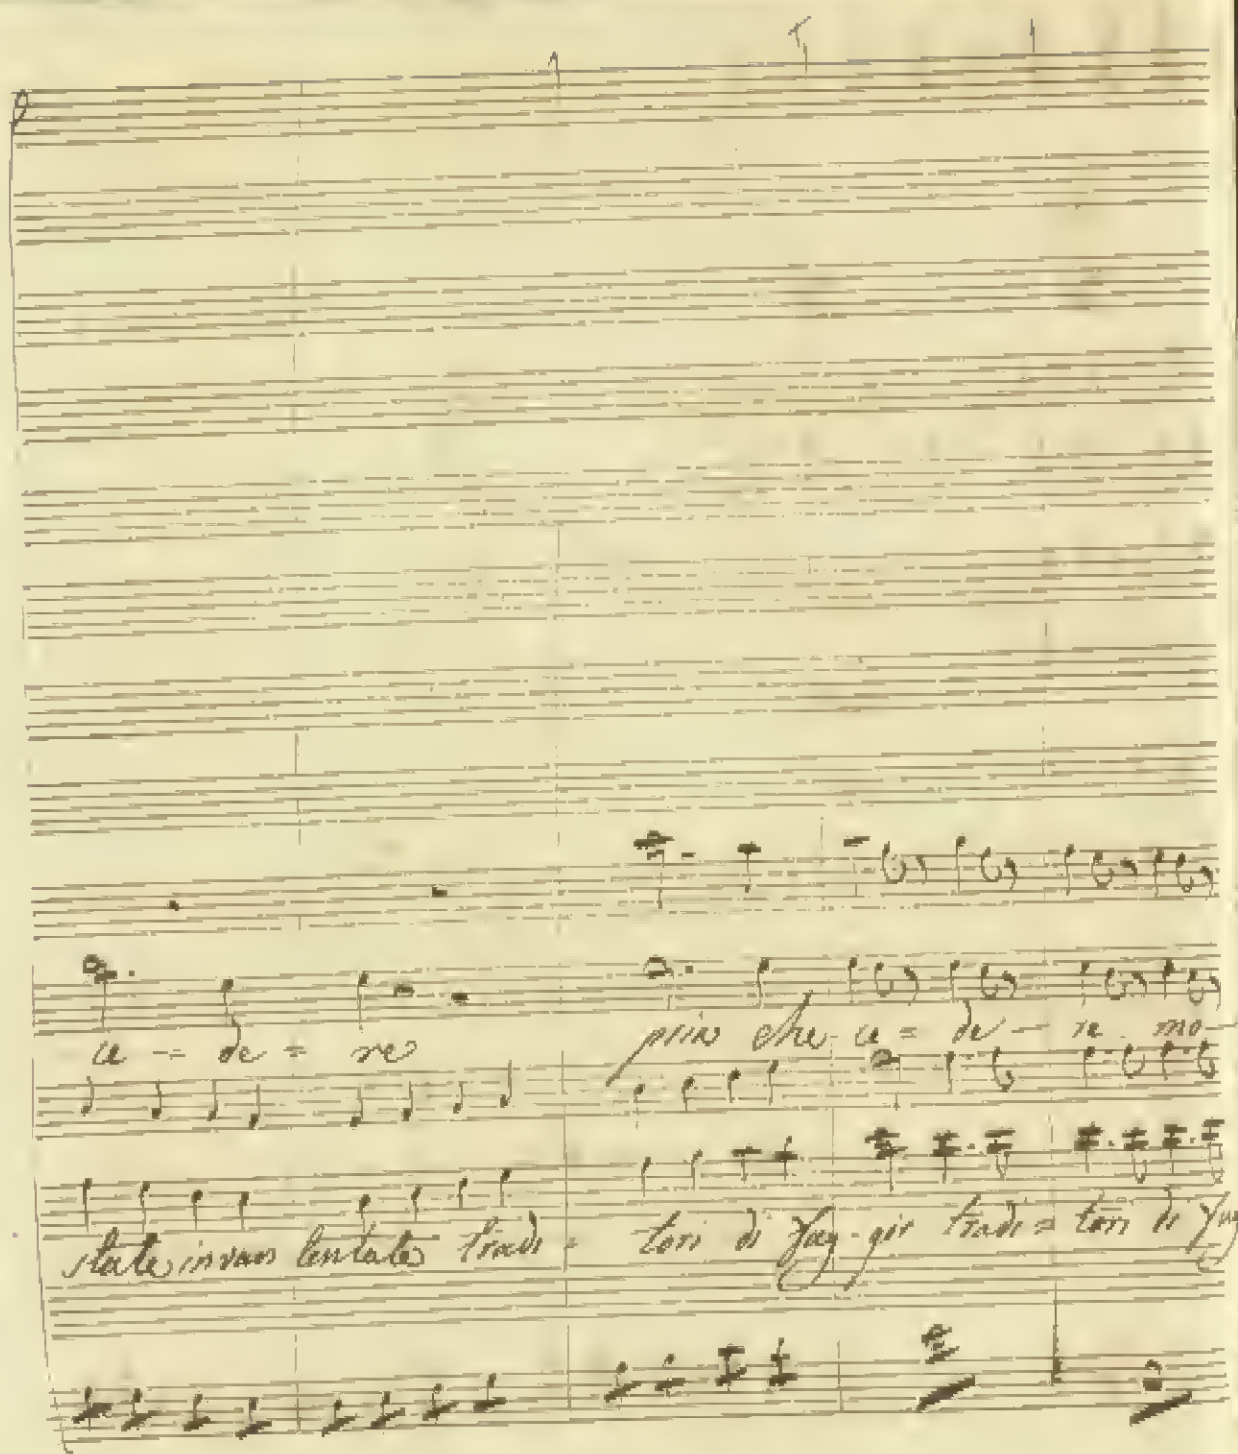 ce -= de = re prin che ce = de - re mo-
state invan tentate tradi = tori di fug-gir tradi = tori di fug